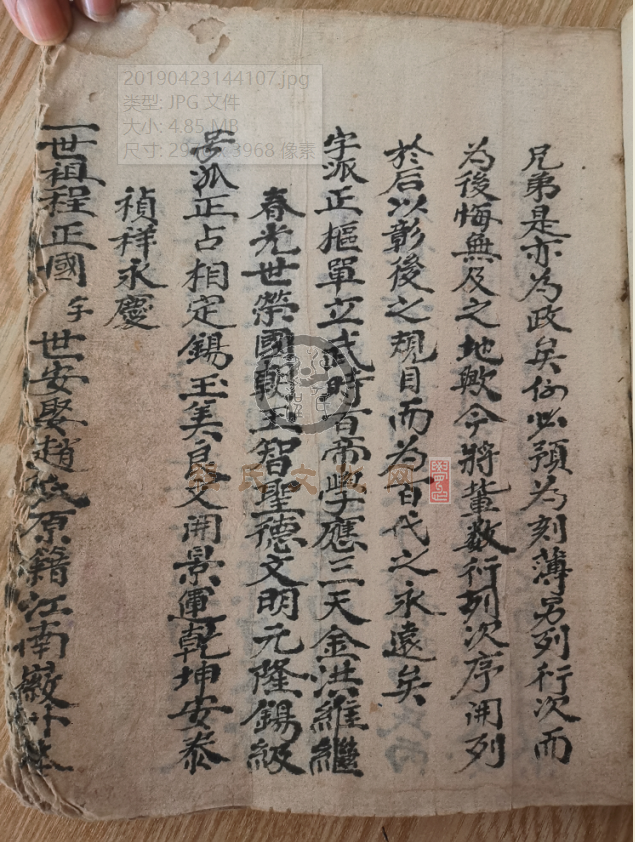 兄弟是亦為政矣何必預為刻薄另列行次而
為後悔無及之地歟今將輩数行列次序開列
於后以彰後之規目而為百代之永遠矣
字派正樞單立武時百帝學應三天金洪維繼
春光世榮國朝玉智聖德文明元隆錫級
号派正占相定錫玉美良文開景運乾坤安泰
禎祥永慶
一世祖程正國字世安娶趙氏原籍江南徽州
20190423144107.jpg
类型: JPG 文件
大小: 4.85 MB
尺寸: 3968 像素